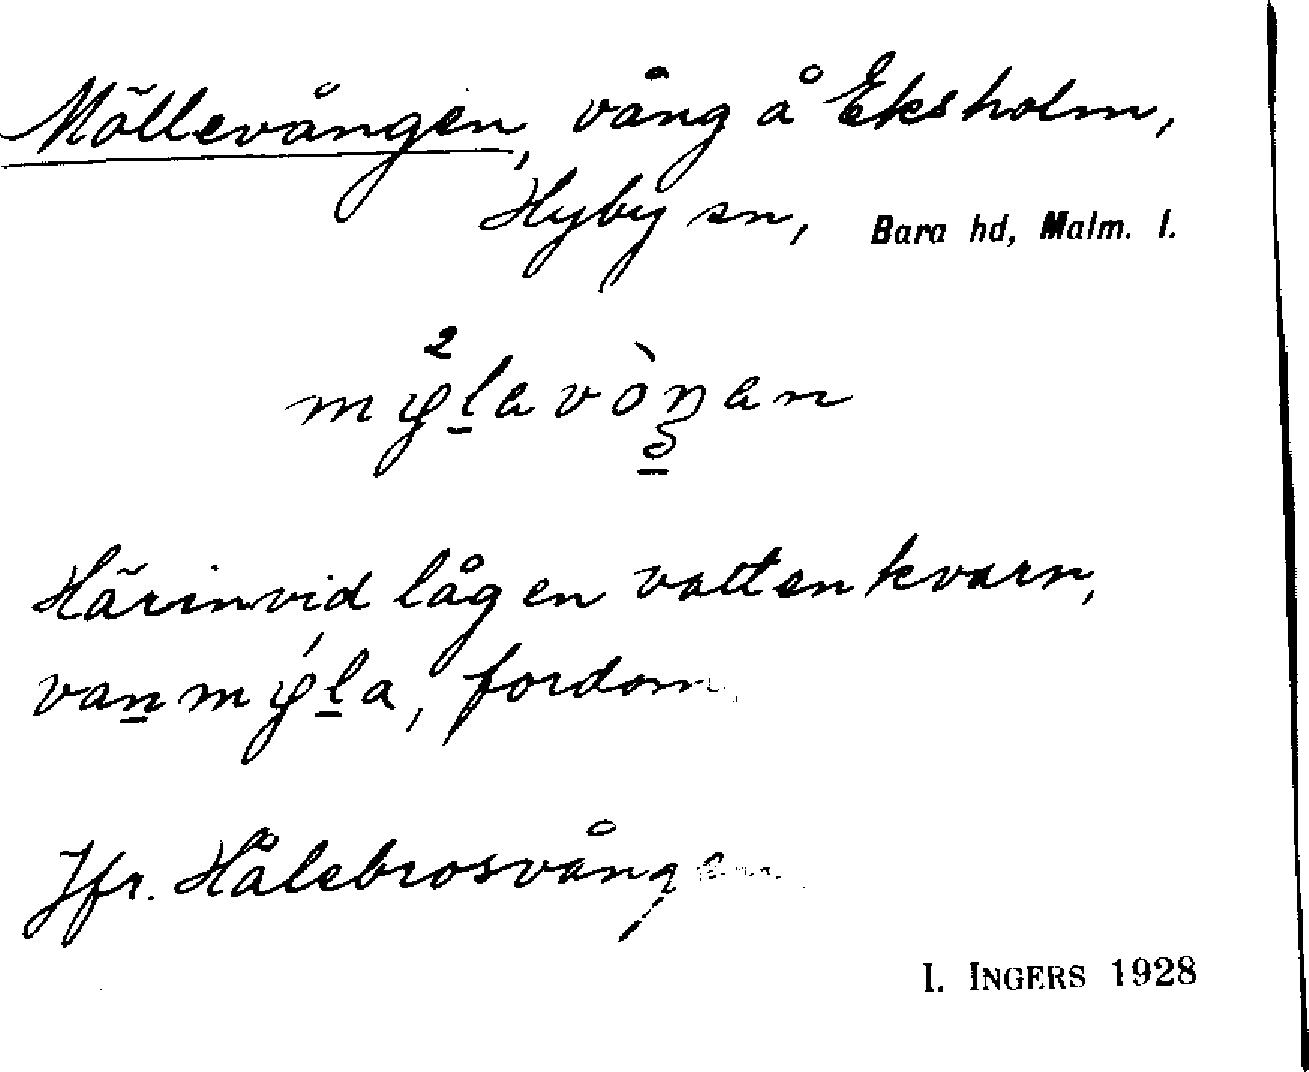 Möllevången, vång å Eksholm,
Hyby sn, Bara hd, Malm. l.
Härinvid låg en vattenkvarn,
fordom.
Jfr. Hålebrosvången
I. INGERS 1928